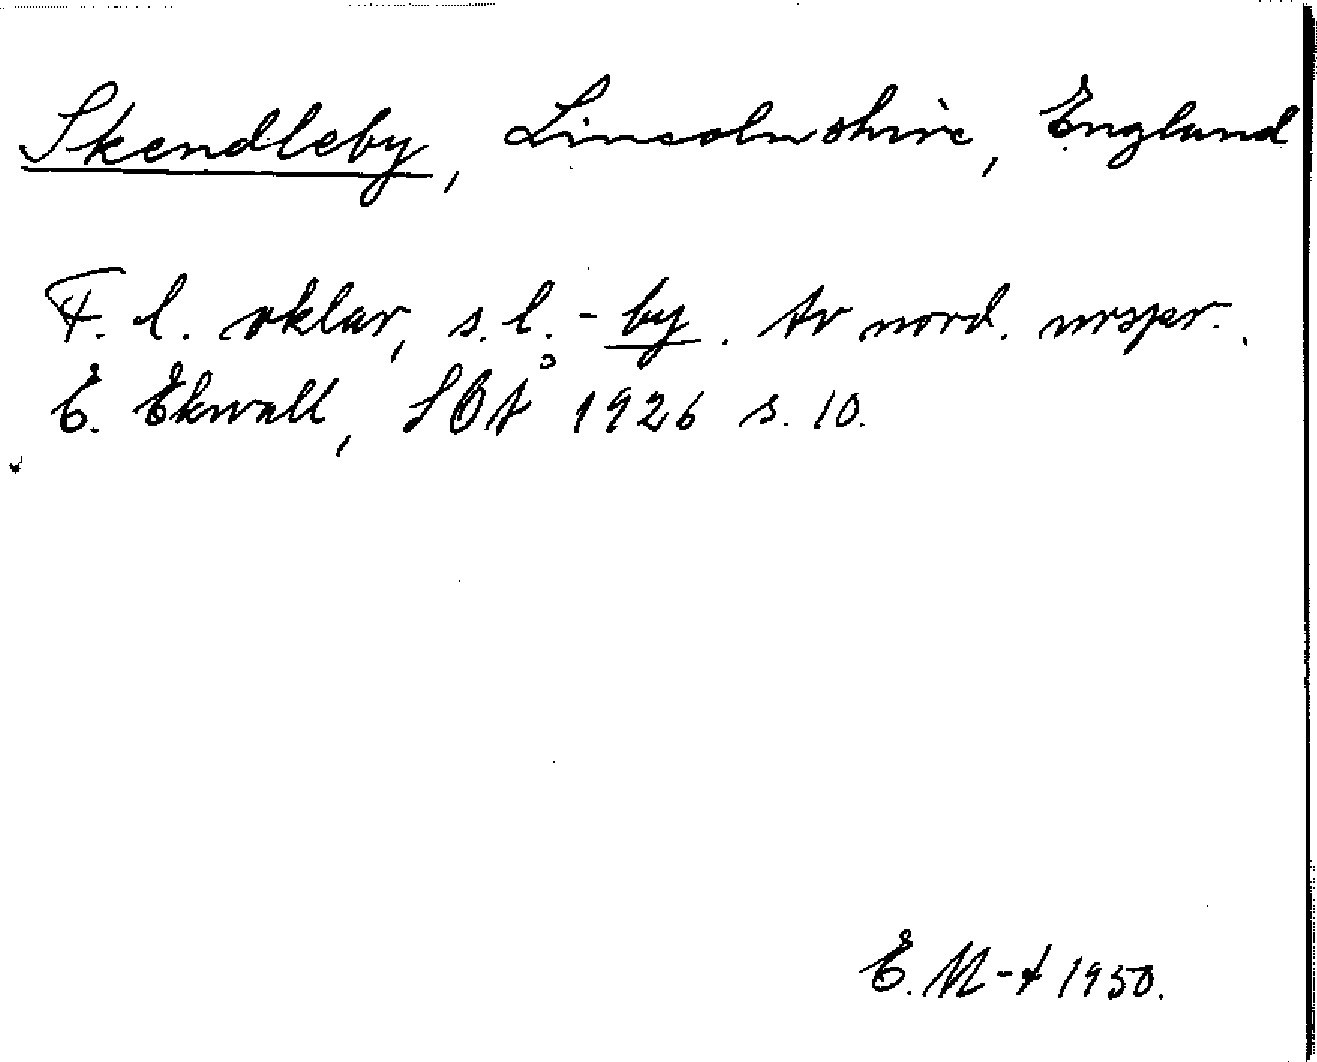 Skendleby, Lincolnshire, England
F. l. oklar, s. l. -by. Av nord. urspr..
E. Ekwall, SOÅ 1926 s. 10.
E. M-t 1950.